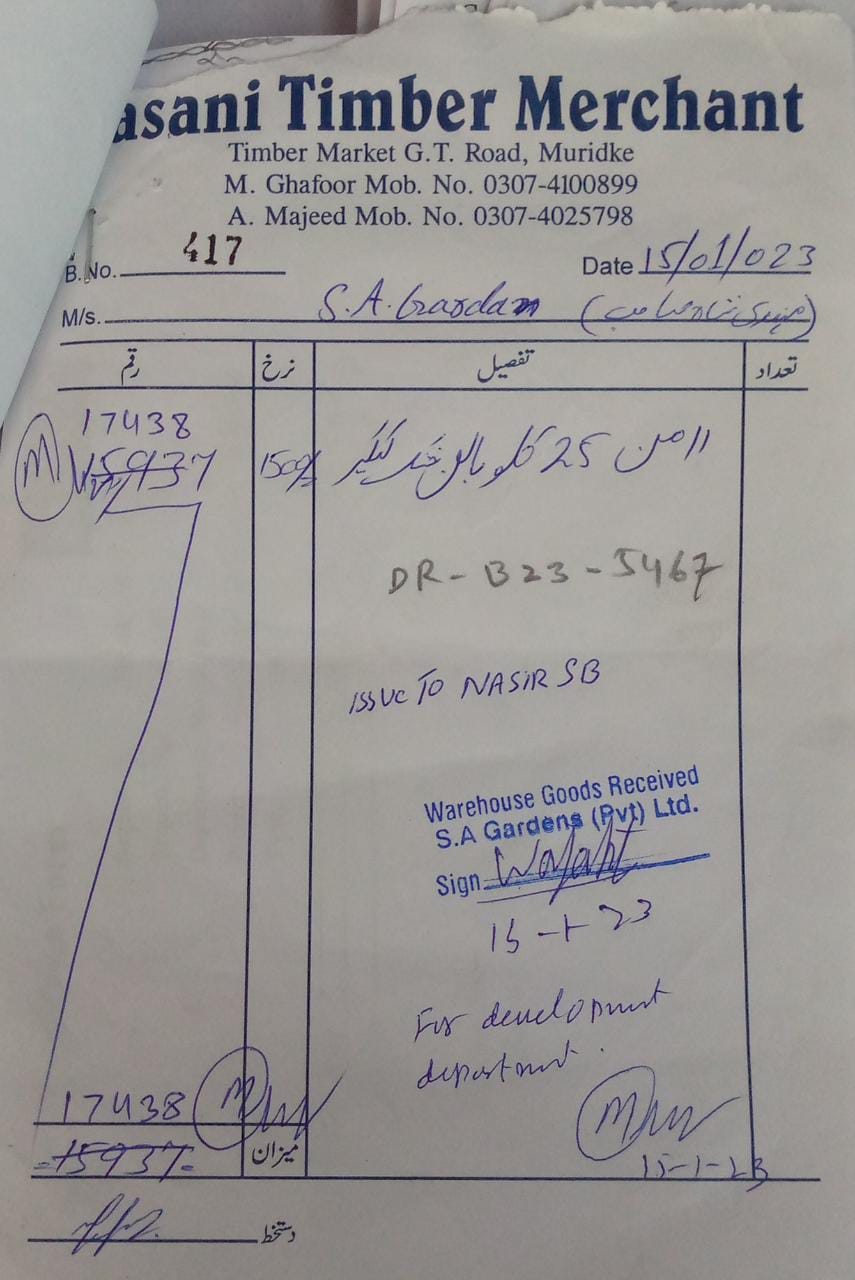 asani Timber Merchant
Timber Market G.T. Road, Muridke
M. Ghafoor Mob. No. 0307-4100899
A. Majeed Mob. No. 0307-4025798
B.No. 417 Date 15/01/023
M/s. S.A. Garden
رقم نرخ تفصیل تعداد
17438
15937 1500/- 11 من 25 کلو بالن
DR-B23-5467
ISSUE TO NASIR SB
Warehouse Goods Received
S.A Gardens (Pvt) Ltd.
Sign
15-1-23
For development
department.
17438
15937 میزان
15-1-23
دستخط